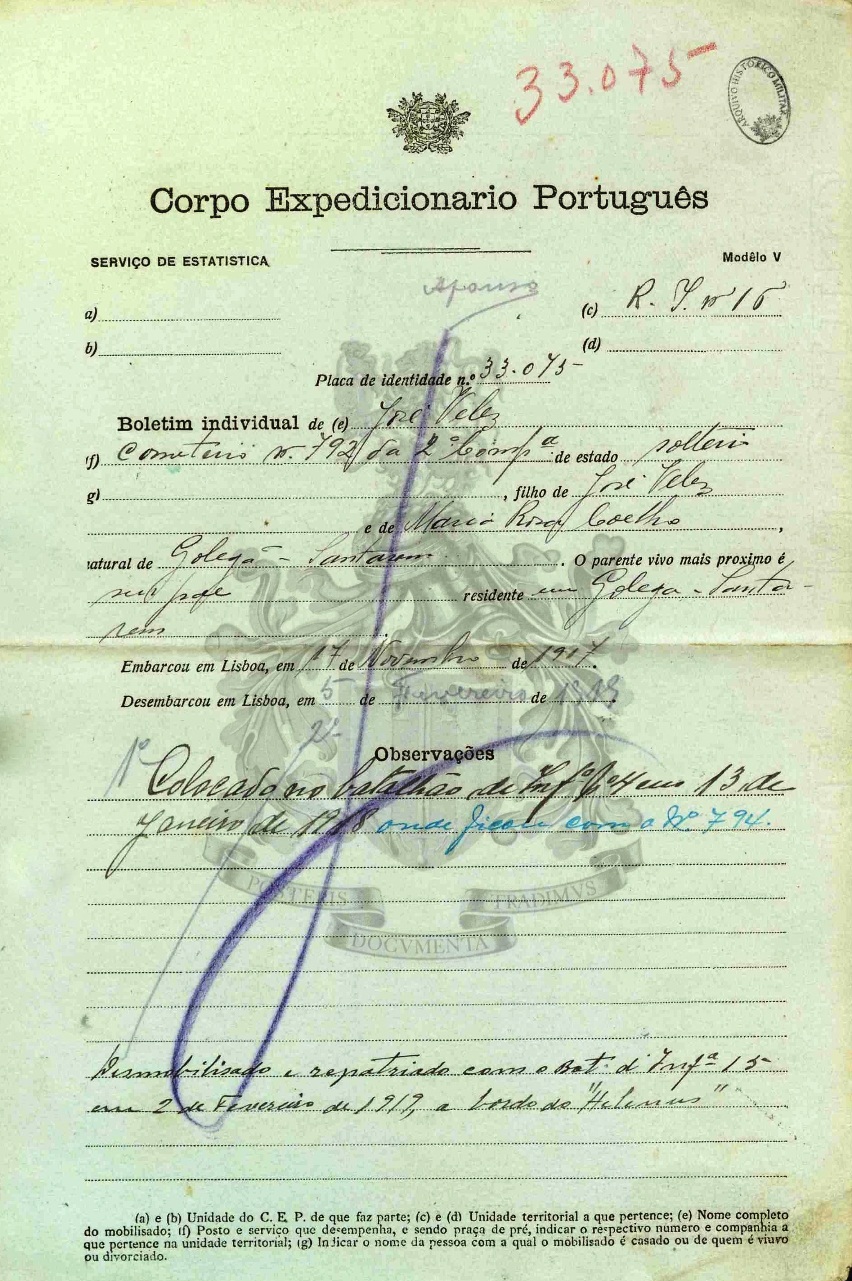 33.075
ARQUIVO HISTÓRICO MILITAR
Corpo Expedicionario Português
SERVIÇO DE ESTATISTICA
Modêlo V
Afonso
a)
(c) R. I. nº 15
b)
(d)
Placa de identidade n.º 33.075
Boletim individual de (e) José Velez
(f) Corneteiro nº 792 da 2ª Compª de estado solteiro
g) , filho de José Velez
e de Maria Rosa Coelho ,
natural de Golegã - Santarem. O parente vivo mais proximo é
seu pae residente em Golegã - Santa-
rem
Embarcou em Lisboa, em 17 de Novembro de 1917.
Desembarcou em Lisboa, em 5 de Fevereiro de 1919.
2º
Observações
1º Colocado no batalhão de Infª nº 4 em 13 de
Janeiro de 1918 onde ficou com o Nº 794.
POSTERIS TRADIMVS
DOCVMENTA
Desmobilisado e repatriado com o Bat. d'Infª 15
em 2 de Fevereiro de 1919, a bordo do "Helenus"
(a) e (b) Unidade do C. E. P. de que faz parte; (c) e (d) Unidade territorial a que pertence; (e) Nome completo
do mobilisado; (f) Posto e serviço que desempenha, e sendo praça de pré, indicar o respectivo numero e companhia a
que pertence na unidade territorial; (g) Indicar o nome da pessoa com a qual o mobilisado é casado ou de quem é viuvo
ou divorciado.